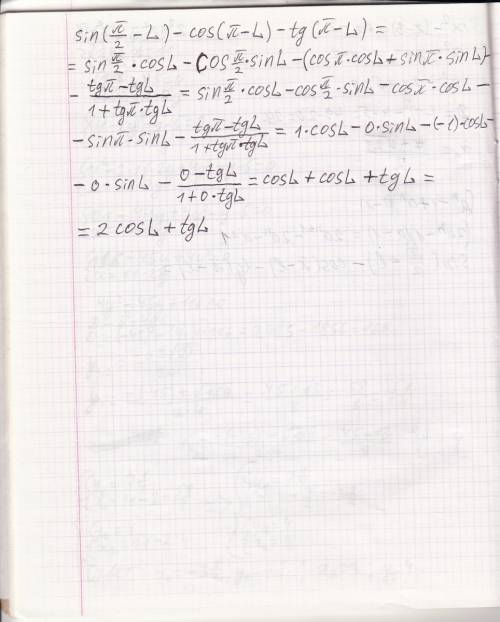 sin(π/2 - L) - cos(π - L) - tg(π - L) =
= sin π/2 · cosL - cos π/2 · sinL - (cosπ · cosL + sinπ · sinL) -
- (tgπ - tgL)/(1 + tgπ · tgL) = sin π/2 · cosL - cos π/2 · sinL - cosπ · cosL -
- sinπ · sinL - (tgπ - tgL)/(1 + tgπ · tgL) = 1 · cosL - 0 · sinL - (-1) · cosL -
- 0 · sinL - (0 - tgL)/(1 + 0 · tgL) = cosL + cosL + tgL =
= 2 cosL + tgL